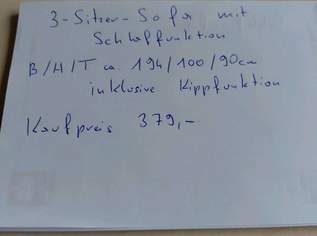 3-Sitzer-Sofa mit
Schlaffunktion
B/H/T ca. 194/100/90cm
inklusive Kippfunktion
Kaufpreis 379,-